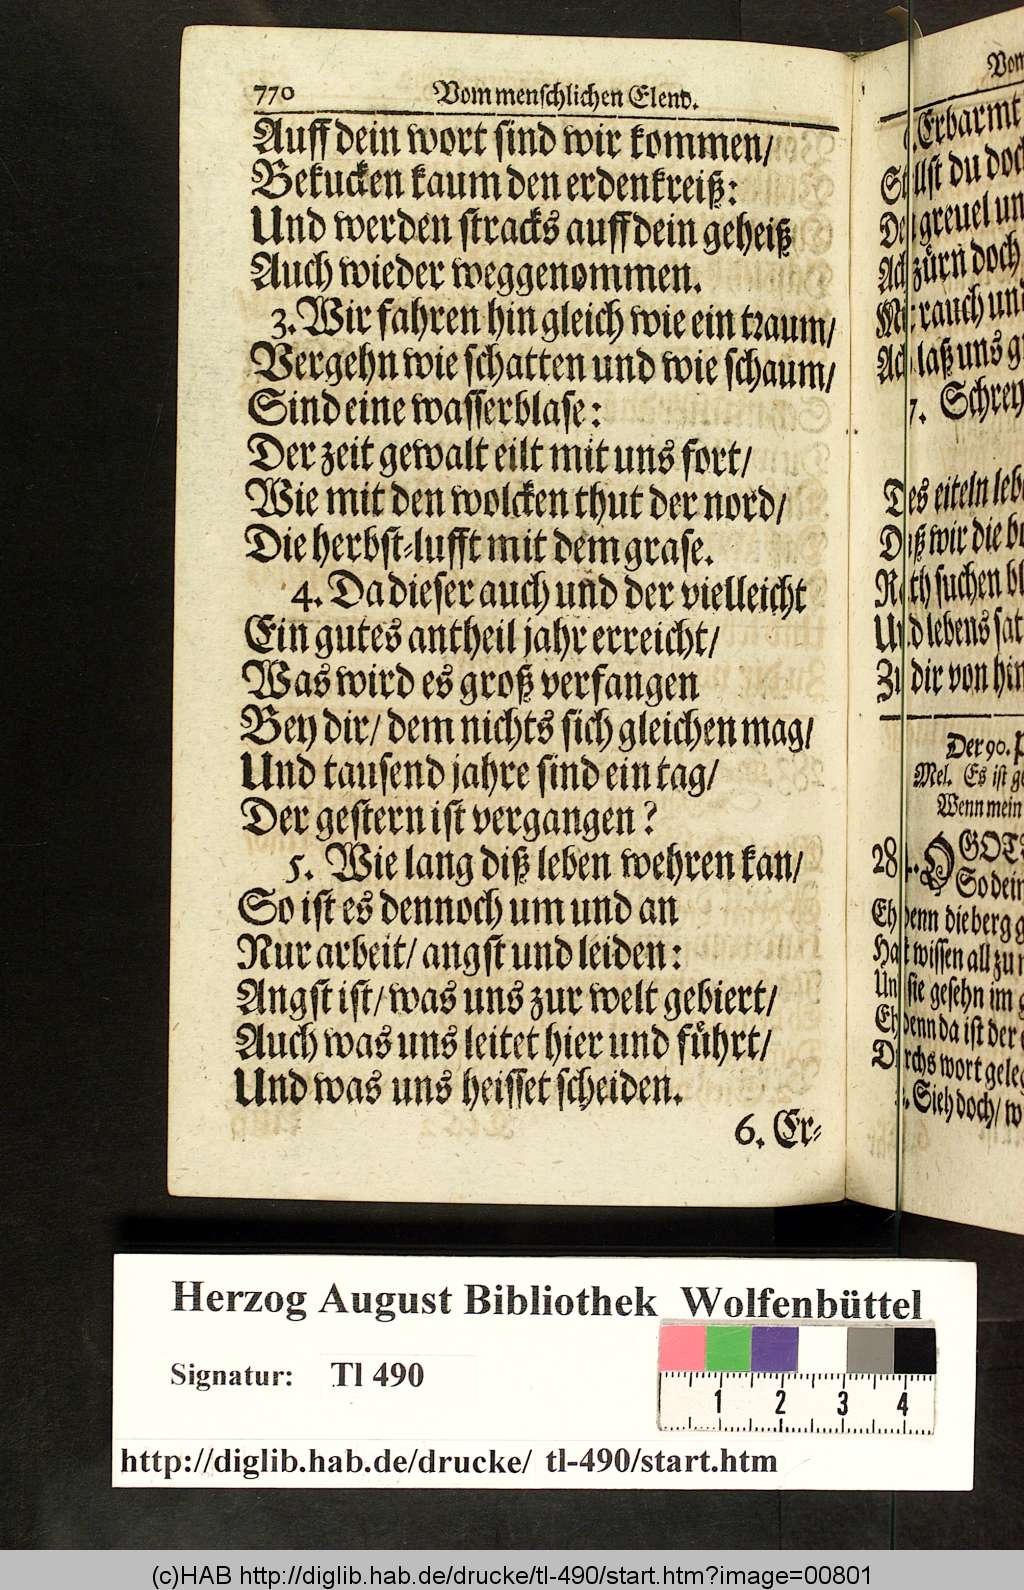 770 Vom menschlichen Elend.
Auff dein wort sind wir kommen/
Bekucken kaum den erdenkreiß:
Und werden stracks auff dein geheiß
Auch wieder weggenommen.
3. Wir fahren hin gleich wie ein traum/
Vergehn wie schatten und wie schaum/
Sind eine wasserblase:
Der zeit gewalt eilt mit uns fort/
Wie mit den wolcken thut der nord/
Die herbst-lufft mit dem grase.
4. Da dieser auch und der vielleicht
Ein gutes antheil jahr erreicht/
Was wird es groß verfangen
Bey dir/ dem nichts sich gleichen mag/
Und tausend jahre sind ein tag/
Der gestern ist vergangen?
5. Wie lang diß leben wehren kan/
So ist es dennoch um und an
Nur arbeit/ angst und leiden:
Angst ist/ was uns zur welt gebiert/
Auch was uns leitet hier und fuͤhrt/
Und was uns heisset scheiden.
6. Er-
Erbarmt
du doch
greuel
zuͤrn doch
rauch und
laß uns
7. Schrey
Des eiteln
wir die
suchen
lebens
Zu dir von hin
Der 90.
Mel. Es ist
Wenn mein
So dein
denn die berg
wissen all zu
sie gesehn im
denn da ist der
wort
Sieh doch/
Herzog August Bibliothek Wolfenbüttel
Signatur: Tl 490
1 2 3 4
http://diglib.hab.de/drucke/ tl-490/start.htm
(c)HAB http://diglib.hab.de/drucke/tl-490/start.htm?image=00801